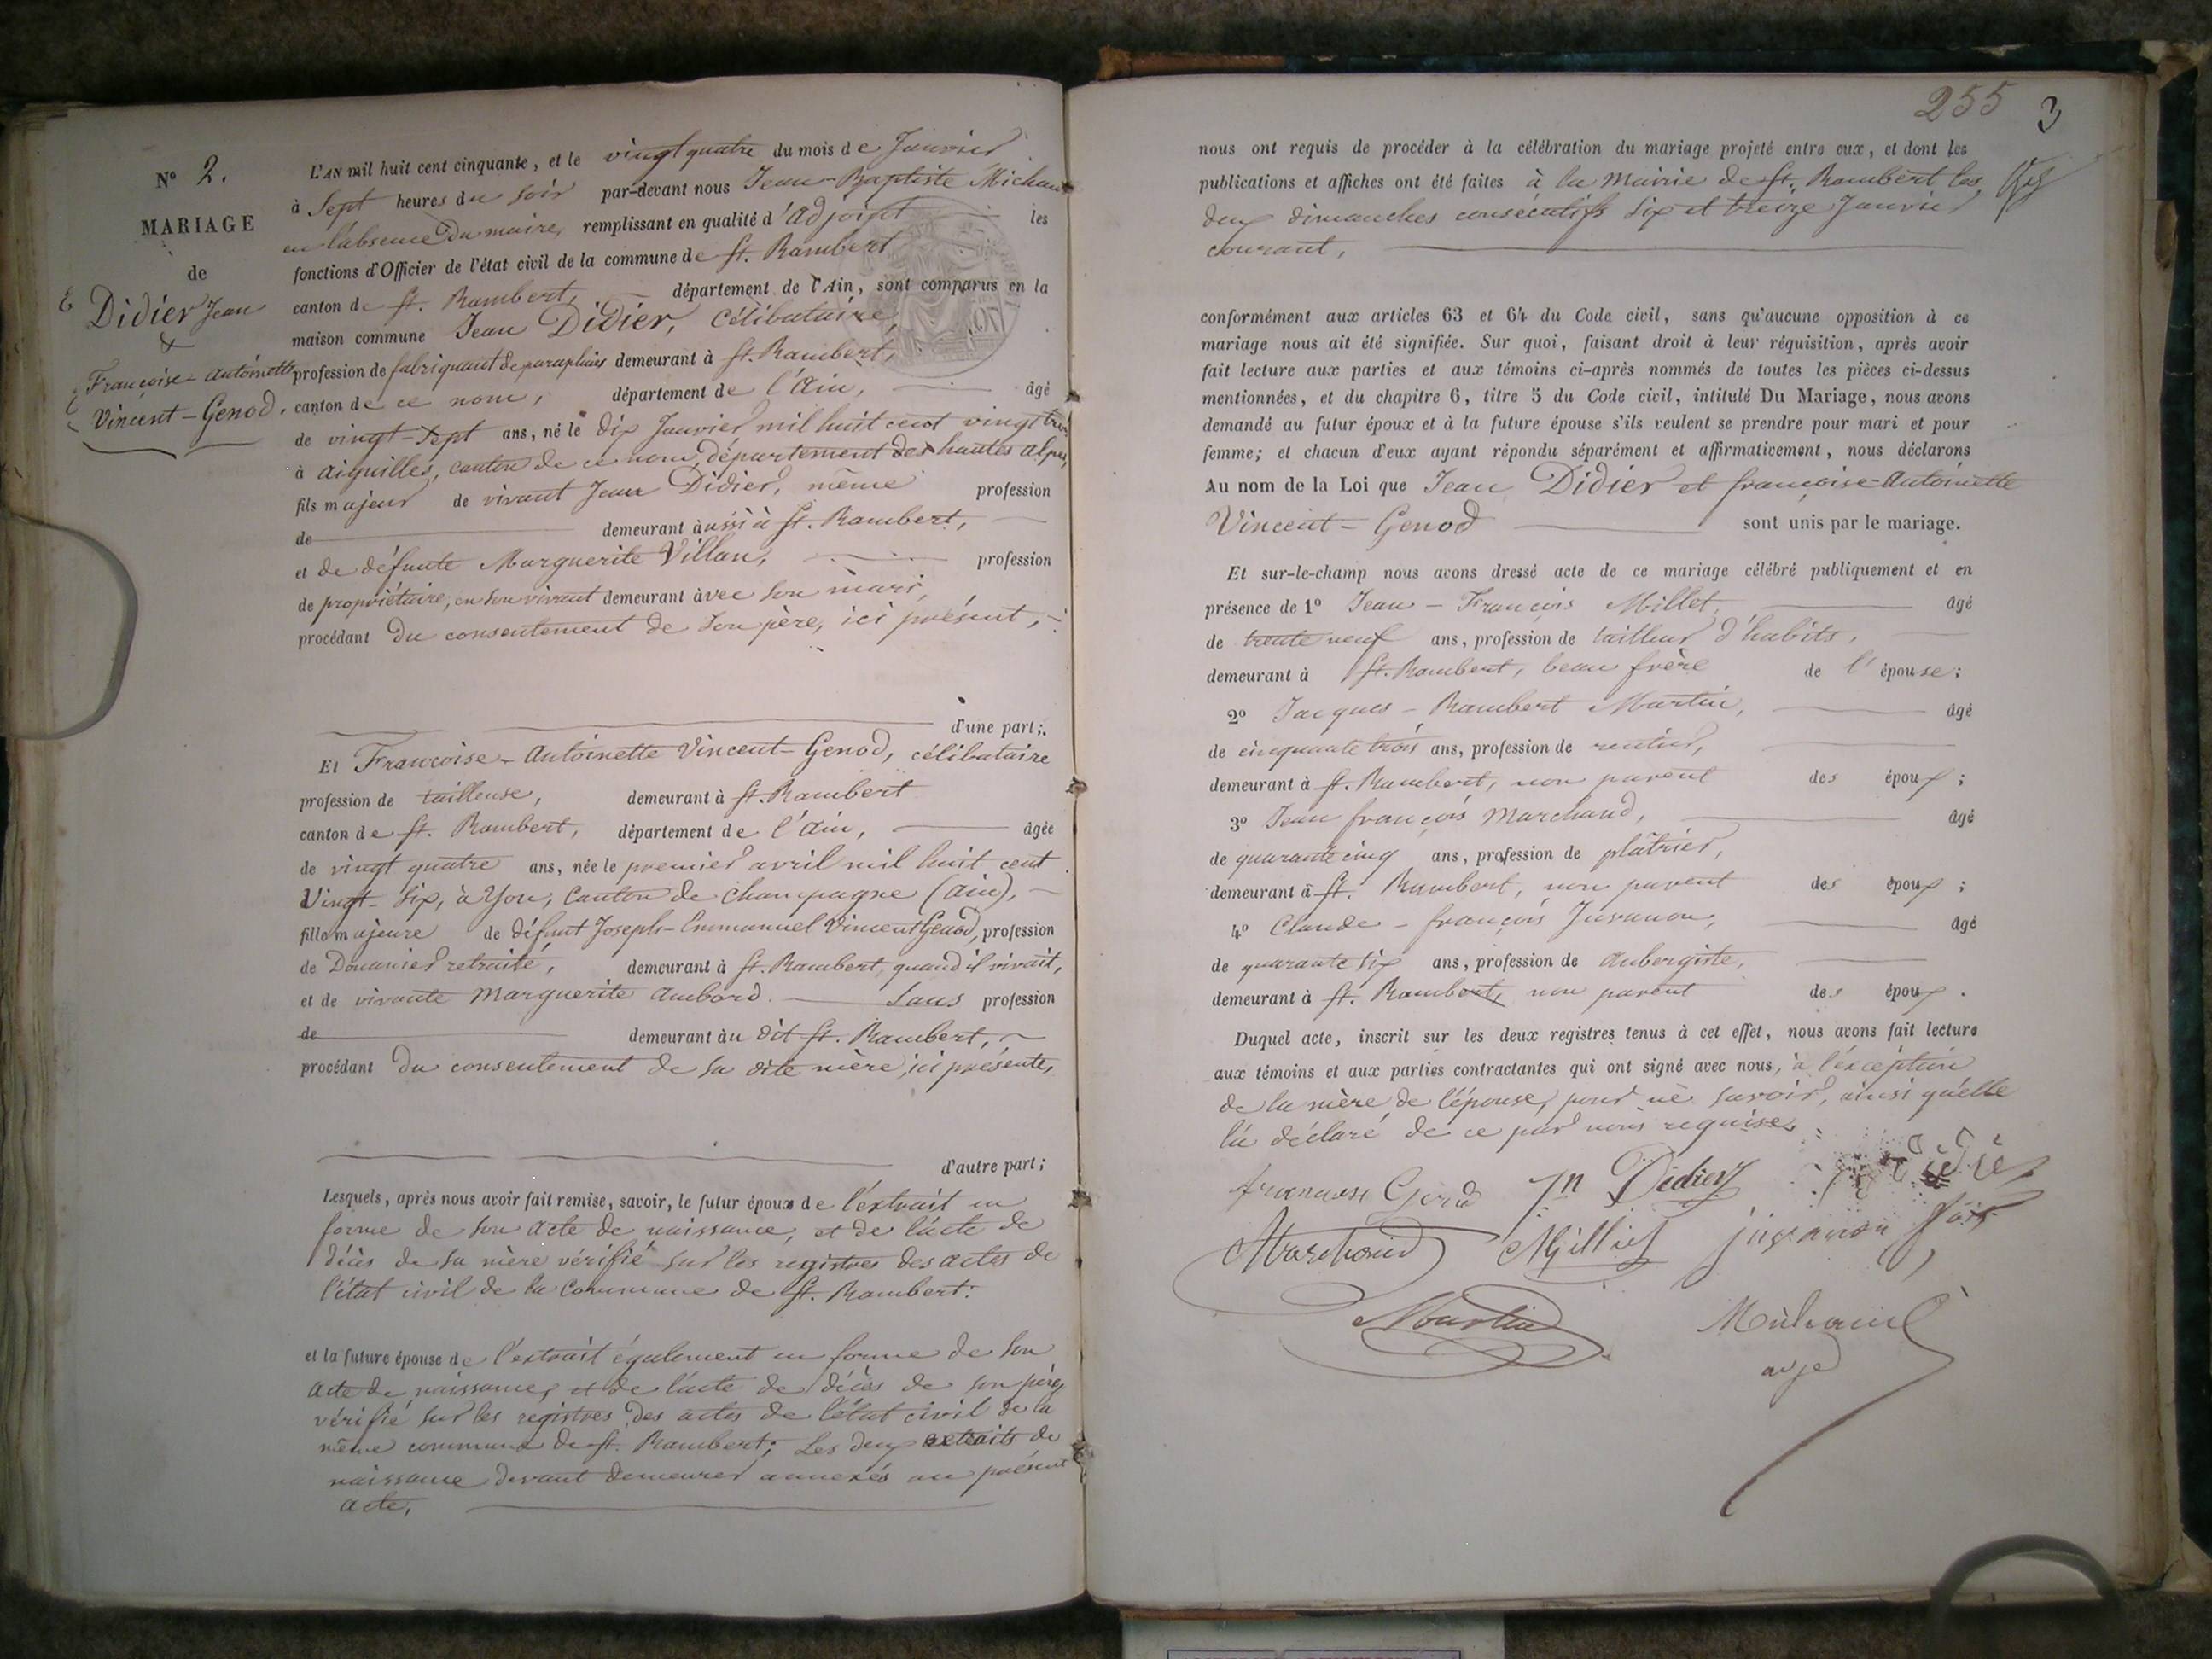 N° 2.
MARIAGE
de
Didier Jean
&
Françoise-Antoinette
Vincent-Genod.
L'AN mil huit cent cinquante, et le vingt quatre du mois de Janvier
à Sept heures du soir par-devant nous Jean-Baptiste Michaud
en l'absence du maire, remplissant en qualité d'adjoint les
fonctions d'Officier de l'état civil de la commune de St. Rambert
canton de St. Rambert, département de l'Ain, sont comparus en la
maison commune Jean Didier, Célibataire,
profession de fabriquant de parapluies demeurant à St. Rambert,
canton de ce nom, département de l'Ain, âgé
de vingt-sept ans, né le dix Janvier mil huit cent vingt trois
à aiguilles, canton de ce nom, département des hautes alpes,
fils majeur de vivant Jean Didier, même profession
de demeurant aussi à St. Rambert,
et de défunte Marguerite Villan, profession
de propriétaire, en son vivant demeurant avec son mari,
procédant du consentement de son père, ici présent,
d'une part;
Et Françoise-Antoinette Vincent-Genod, célibataire
profession de tailleuse, demeurant à St. Rambert
canton de St. Rambert, département de l'Ain, âgée
de vingt quatre ans, née le premier avril mil huit cent
Vingt-six, à Yon, Canton de Champagne (Ain),
fille majeure de défunt Joseph-Emmanuel Vincent Genod, profession
de Douanier retraité, demeurant à St. Rambert, quand il vivait,
et de vivante Marguerite Ambord. Sans profession
de demeurant au dit St. Rambert,
procédant du consentement de sa dite mère, ici présente,
d'autre part;
Lesquels, après nous avoir fait remise, savoir, le futur époux de l'extrait en
forme de son acte de naissance, et de l'acte de
décès de sa mère vérifié sur les registres des actes de
l'état civil de la Commune de St. Rambert:
et la future épouse de l'extrait également en forme de son
acte de naissance, et de l'acte de décès de son père,
vérifié sur les registres des actes de l'état civil de la
même commune de St. Rambert; Les deux extraits de
naissance devant demeurer annexés au présent
acte,
255 3
nous ont requis de procéder à la célébration du mariage projeté entre eux, et dont les
publications et affiches ont été faites à la Mairie de St. Rambert les
deux dimanches consécutifs six et treize Janvier
courant,
conformément aux articles 63 et 64 du Code civil, sans qu'aucune opposition à ce
mariage nous ait été signifiée. Sur quoi, faisant droit à leur réquisition, après avoir
fait lecture aux parties et aux témoins ci-après nommés de toutes les pièces ci-dessus
mentionnées, et du chapitre 6, titre 5 du Code civil, intitulé Du Mariage, nous avons
demandé au futur époux et à la future épouse s'ils veulent se prendre pour mari et pour
femme; et chacun d'eux ayant répondu séparément et affirmativement, nous déclarons
Au nom de la Loi que Jean Didier et françoise-Antoinette
Vincent-Genod sont unis par le mariage.
Et sur-le-champ nous avons dressé acte de ce mariage célébré publiquement et en
présence de 1° Jean-François Millet, âgé
de trente neuf ans, profession de tailleur d'habits,
demeurant à St. Rambert, beau frère de l'épouse;
2° Jacques-Rambert Martin, âgé
de cinquante trois ans, profession de rentier,
demeurant à St. Rambert, non parent des époux;
3° Jean françois Marchand, âgé
de quarante cinq ans, profession de plâtrier,
demeurant à St. Rambert, non parent des époux;
4° Claude-françois Juvanon, âgé
de quarante six ans, profession de Aubergiste,
demeurant à St. Rambert, non parent des époux.
Duquel acte, inscrit sur les deux registres tenus à cet effet, nous avons fait lecture
aux témoins et aux parties contractantes qui ont signé avec nous, à l'exception
de la mère de l'épouse, pour ne savoir, ainsi qu'elle
l'a déclaré de ce par nous requise.
Jn Didier
Marchand Millet juvanon
Martin Michaud